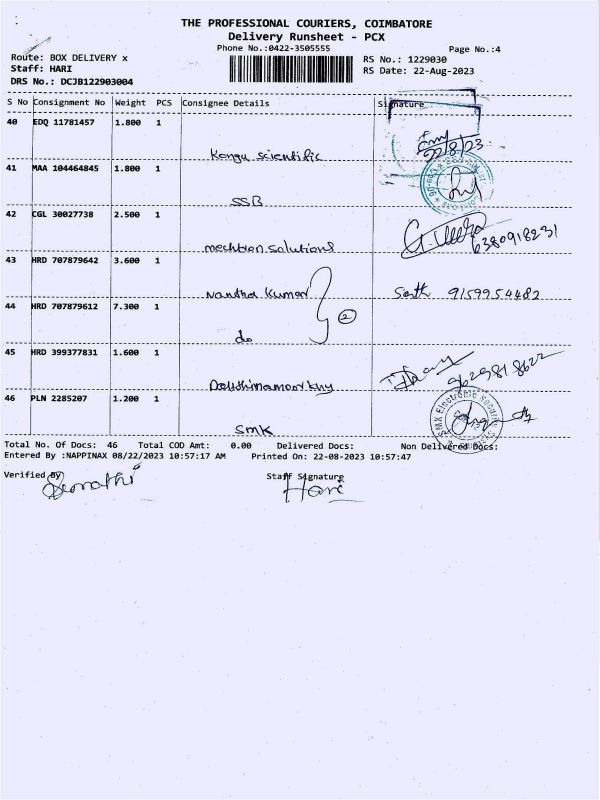 THE PROFESSIONAL COURIERS, COIMBATORE
Delivery Runsheet - PCX
Phone No.:0422-3505555
Page No.:4
Route: BOX DELIVERY x
RS No.: 1229030
Staff: HARI
RS Date: 22-Aug-2023
DRS No.: DCJB122903004
S No Consignment No Weight PCS Consignee Details Signature
40 EDQ 11781457 1.800 1
Kongu scientific
22/8/23
41 MAA 104464845 1.800 1
SSB
42 CGL 30027738 2.500 1
solutions
6380918231
43 HRD 707879642 3.600 1
Nantha Kumar 9159954482
44 HRD 707879612 7.300 1
2
do
45 HRD 399377831 1.600 1
46 PLN 2285207 1.200 1
SMK
Total No. Of Docs: 46 Total COD Amt: 0.00 Delivered Docs: Non Delivered Docs:
Entered By :NAPPINAX 08/22/2023 10:57:17 AM Printed On: 22-08-2023 10:57:47
Verified By Staff Signature
Hari